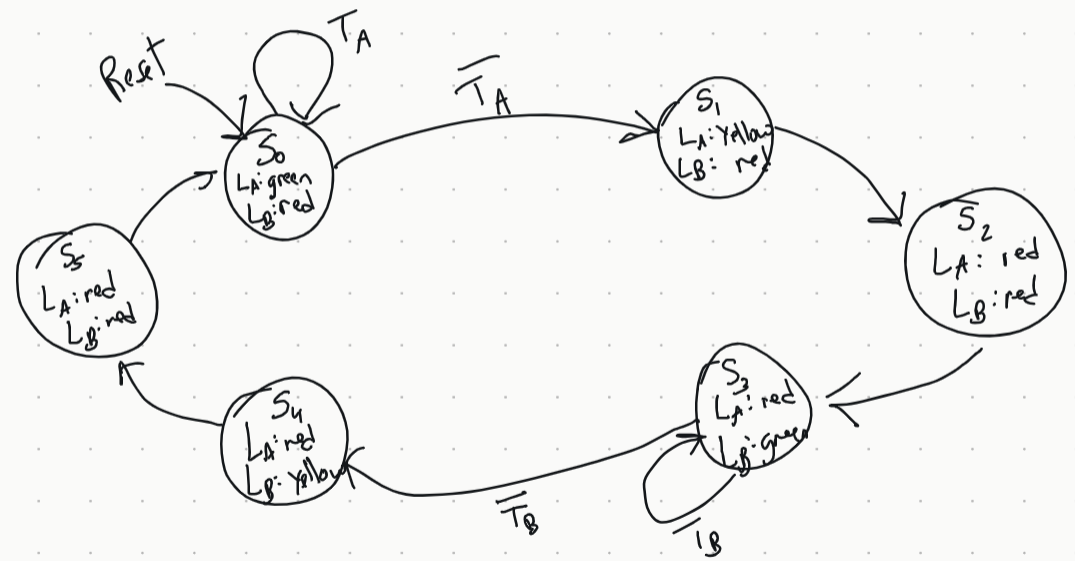 Reset
T_A
T̅_A
S₀
L_A: green
L_B: red
S₁
L_A: Yellow
L_B: red
S₂
L_A: red
L_B: red
S₃
L_A: red
L_B: green
T_B
T̅_B
S₄
L_A: red
L_B: Yellow
S₅
L_A: red
L_B: red